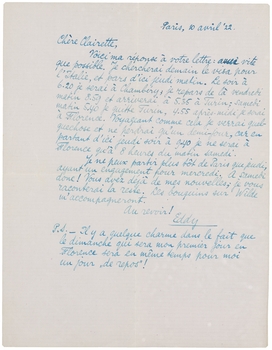 Paris, 10 avril '22.
Chère Clairette,
Voici ma réponse à votre lettre: aussi vite
que possible. Je chercherai demain le visa pour
l'Italie, et pars d'ici jeudi matin. Le soir à
6.20 je serai à Chambéry; je repars de là vendredi
matin 3.50 et arriverai à 5.35 à Turin; samedi
matin je quitte Turin, 4.55 après-midi je serai à
Florence. Voyageant comme cela je verrai quelque
chose et ne perdrai qu'un demi jour, car en
partant d'ici jeudi soir à je serai à
Florence pas à 8 heures du matin samedi.
Je ne peux partir plus tôt de Paris que jeudi,
ayant un engagement pour mercredi. À samedi
donc! Vous avez déjà de mes nouvelles, je vous
raconterai la reste. Ces bouquins sur Wilde
m'accompagneront.
Au revoir!
Eddy
P.S. — Il y a quelque charme dans le fait que
le dimanche qui sera mon premier pour en
Florence sera en même temps pour moi
un jour "de repos"!